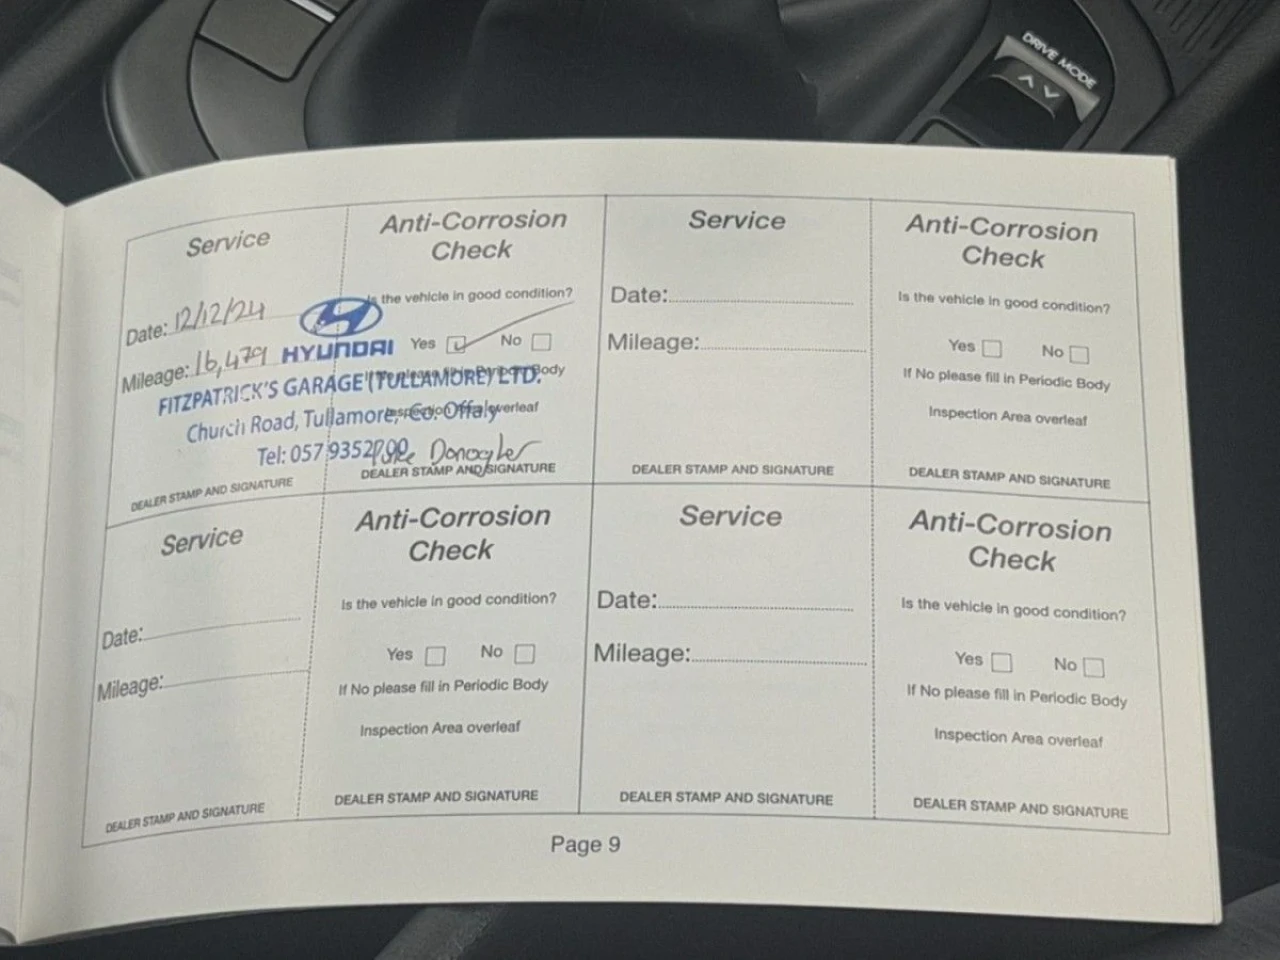 DRIVE MODE
Service
Date: 12/12/24
Mileage: 16,479
HYUNDAI
FITZPATRICK'S GARAGE (TULLAMORE) LTD.
Church Road, Tullamore, Co. Offaly
Tel: 057 9352
DEALER STAMP AND SIGNATURE
Anti-Corrosion
Check
Is the vehicle in good condition?
Yes No
Body
overleaf
DEALER STAMP AND SIGNATURE
Service
Date:
Mileage:
DEALER STAMP AND SIGNATURE
Anti-Corrosion
Check
Is the vehicle in good condition?
Yes No
If No please fill in Periodic Body
Inspection Area overleaf
DEALER STAMP AND SIGNATURE
Service
Date:
Mileage:
DEALER STAMP AND SIGNATURE
Anti-Corrosion
Check
Is the vehicle in good condition?
Yes No
If No please fill in Periodic Body
Inspection Area overleaf
DEALER STAMP AND SIGNATURE
Service
Date:
Mileage:
DEALER STAMP AND SIGNATURE
Anti-Corrosion
Check
Is the vehicle in good condition?
Yes No
If No please fill in Periodic Body
Inspection Area overleaf
DEALER STAMP AND SIGNATURE
Page 9